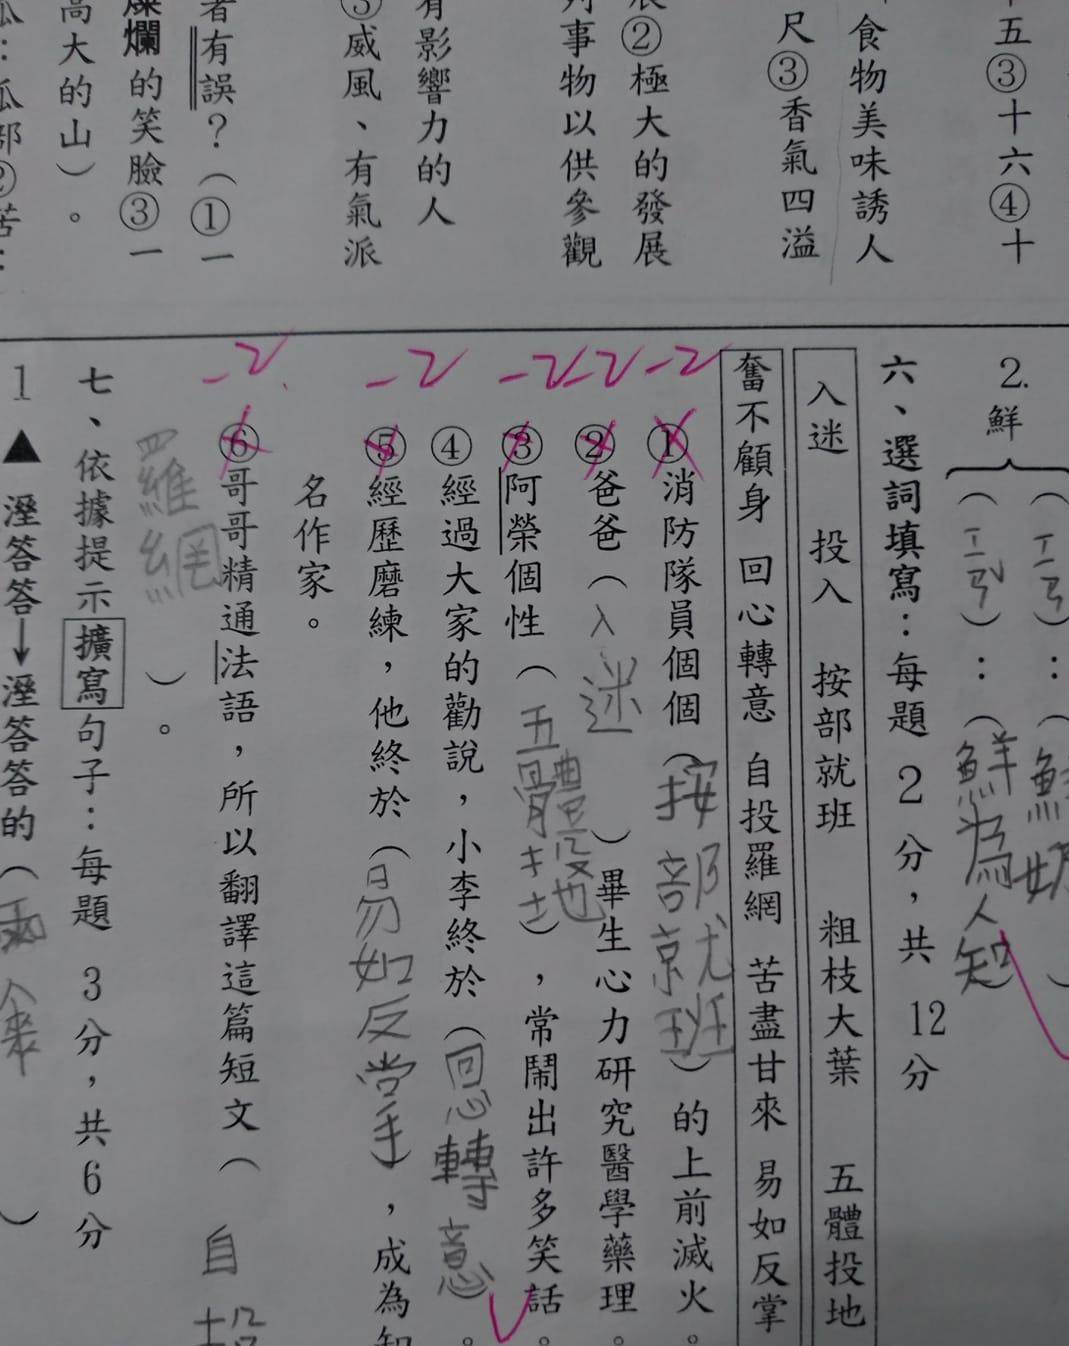 十五③十六④十
食物美味誘人
尺③香氣四溢
展②極大的發展
事物以供參觀
有影響力的人
③威風、有氣派
者有誤？（①一
燦爛的笑臉③一
高大的山）。
瓜：瓜部②苦：
2.鮮
（ㄒㄧㄢ）：（
（ㄒㄧㄢˇ）：（鮮為人知）
六、選詞填寫：每題2分，共12分
入迷 投入 按部就班 粗枝大葉 五體投地
奮不顧身 回心轉意 自投羅網 苦盡甘來 易如反掌
-2 ①消防隊員個個（按部就班）的上前滅火。
-2 ②爸爸（入迷）畢生心力研究醫學藥理。
-2 ③阿榮個性（五體投地），常鬧出許多笑話。
④經過大家的勸說，小李終於（回心轉意）。
-2 ⑤經歷磨練，他終於（易如反掌），成為知
名作家。
-2 ⑥哥哥精通法語，所以翻譯這篇短文（自投
羅網）。
七、依據提示擴寫句子：每題3分，共6分
1▲溼答答→溼答答的（